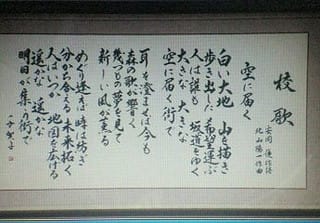 校歌
空に届く
安岡 優 作詞
北山陽一 作曲
白い大地 山を描き
歩き出した 希望運ぶ
人は誰も 坂道をゆく
大きな 大きな
空に届く街で
耳を澄ませば今も
森の歌が響く
幾つもの夢を見て
新しい風が薫る
めぐり逢えば 時は紡ぎ
分かち合える 未来拓く
人はいつか 地図を広げる
遥かな 遥かな
明日が集う街で